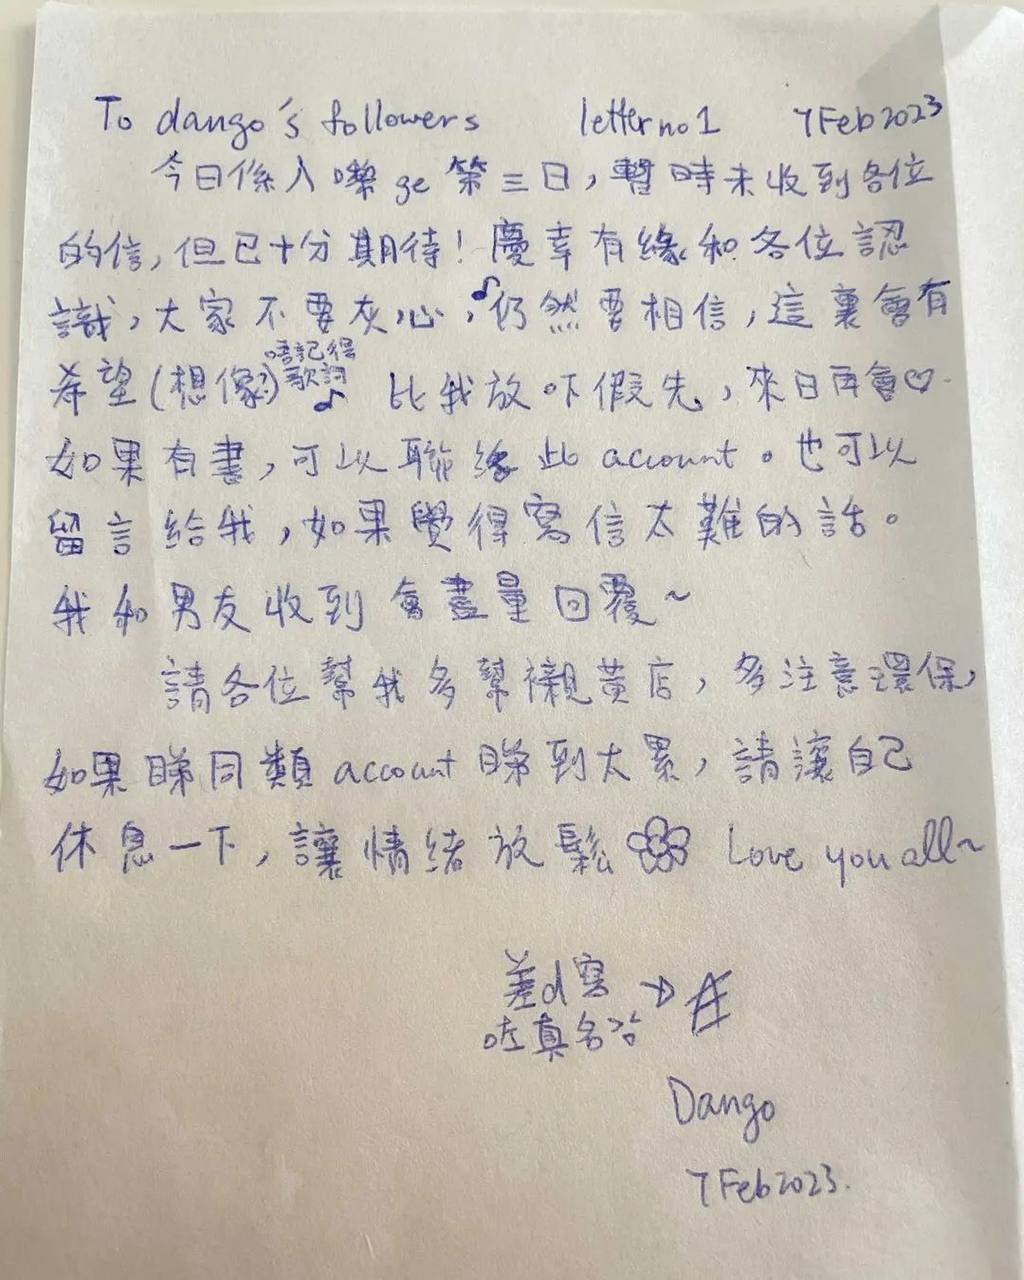 To dango's followers letter no 1 7 Feb 2023
今日係入嚟 ge 第三日，暫時未收到各位
的信，但已十分期待！慶幸有緣和各位認
識，大家不要灰心，♪仍然要相信，這裏會有
希望(想像?) 唔記得歌詞♪ 比我放吓假先，來日再會♡.
如果有書，可以聯絡此 account。也可以
留言給我，如果覺得寫信太難的話。
我和男友收到會盡量回覆~
請各位幫我多幫襯黃店，多注意環保，
如果睇同類 account 睇到太累，請讓自己
休息一下，讓情緒放鬆 Love you all~
差d寫
咗真名哈 →
Dango
7 Feb 2023.